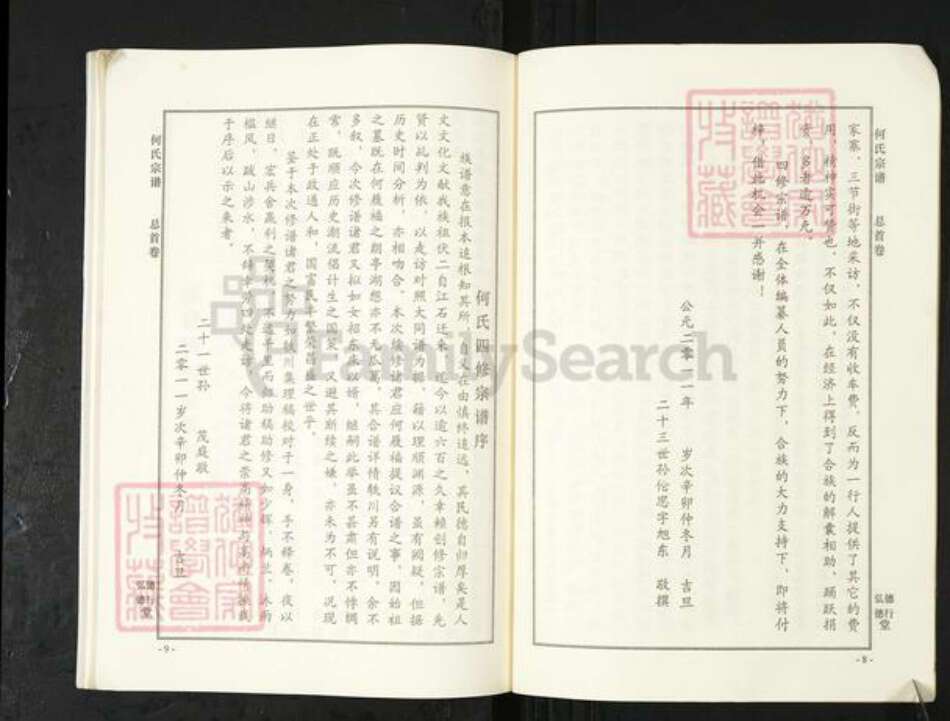 何氏宗谱
总首卷
家寨、三节街等地采访，不仅没有收车费，反而为一行人提供了其它的费
用，精神实可赞也，不仅如此，在经济上得到了合族的解囊相助、踊跃捐
资，多者逾万元。
四修宗谱，在全体编纂人员的努力下，合族的大力支持下，即将付
梓，借此机会一并感谢！
公元二零一一年 岁次辛卯仲冬月 吉旦
二十三世孙伦思字旭东 敬撰
德行堂
弘德
-8-
何氏四修宗谱序
族谱意在报本追根知其所自
由慎终追远，其民德自归厚矣是人
文文化文献我族祖伏二自江石迁来，迄今以逾六百之久幸赖创修宗谱，先
贤以乩判为依，以走访对照大同谱为据，籍以理顺渊源，虽有阙疑，但据
历史时间分析，亦相吻合。本次续修诸君应何履福提议合谱之事，因始祖
之墓既在何履福之朗亭湖想亦不无瓜葛，其合谱详情轶川另有说明，余不
多叙，今次修谱诸君又拟如女招东床以婿，继嗣此举虽不甚肃但亦不悖纲
常，既顺应历史潮流偌计生之国策，又避其断续之嫌，亦未为不可，况现
在正处于政通人和，国富民丰繁荣昌盛之世乎。
鉴于本次修谱诸君之努力
轶川集理稿校对于一身，手不释卷，夜以
继日，宏兵舍赢利之契机，不遗
助稿助修又如少辉、炳兰，沐雨
栉风，跋山涉水，不辞辛劳四处走访，今将诸君之崇高精神与高尚情操载
于序后以示之来者。
二十一世孙 茂庭敬
二零一一岁次辛卯仲冬月 吉旦
何氏宗谱
总首卷
德行堂
弘德
-9-
FamilySearch